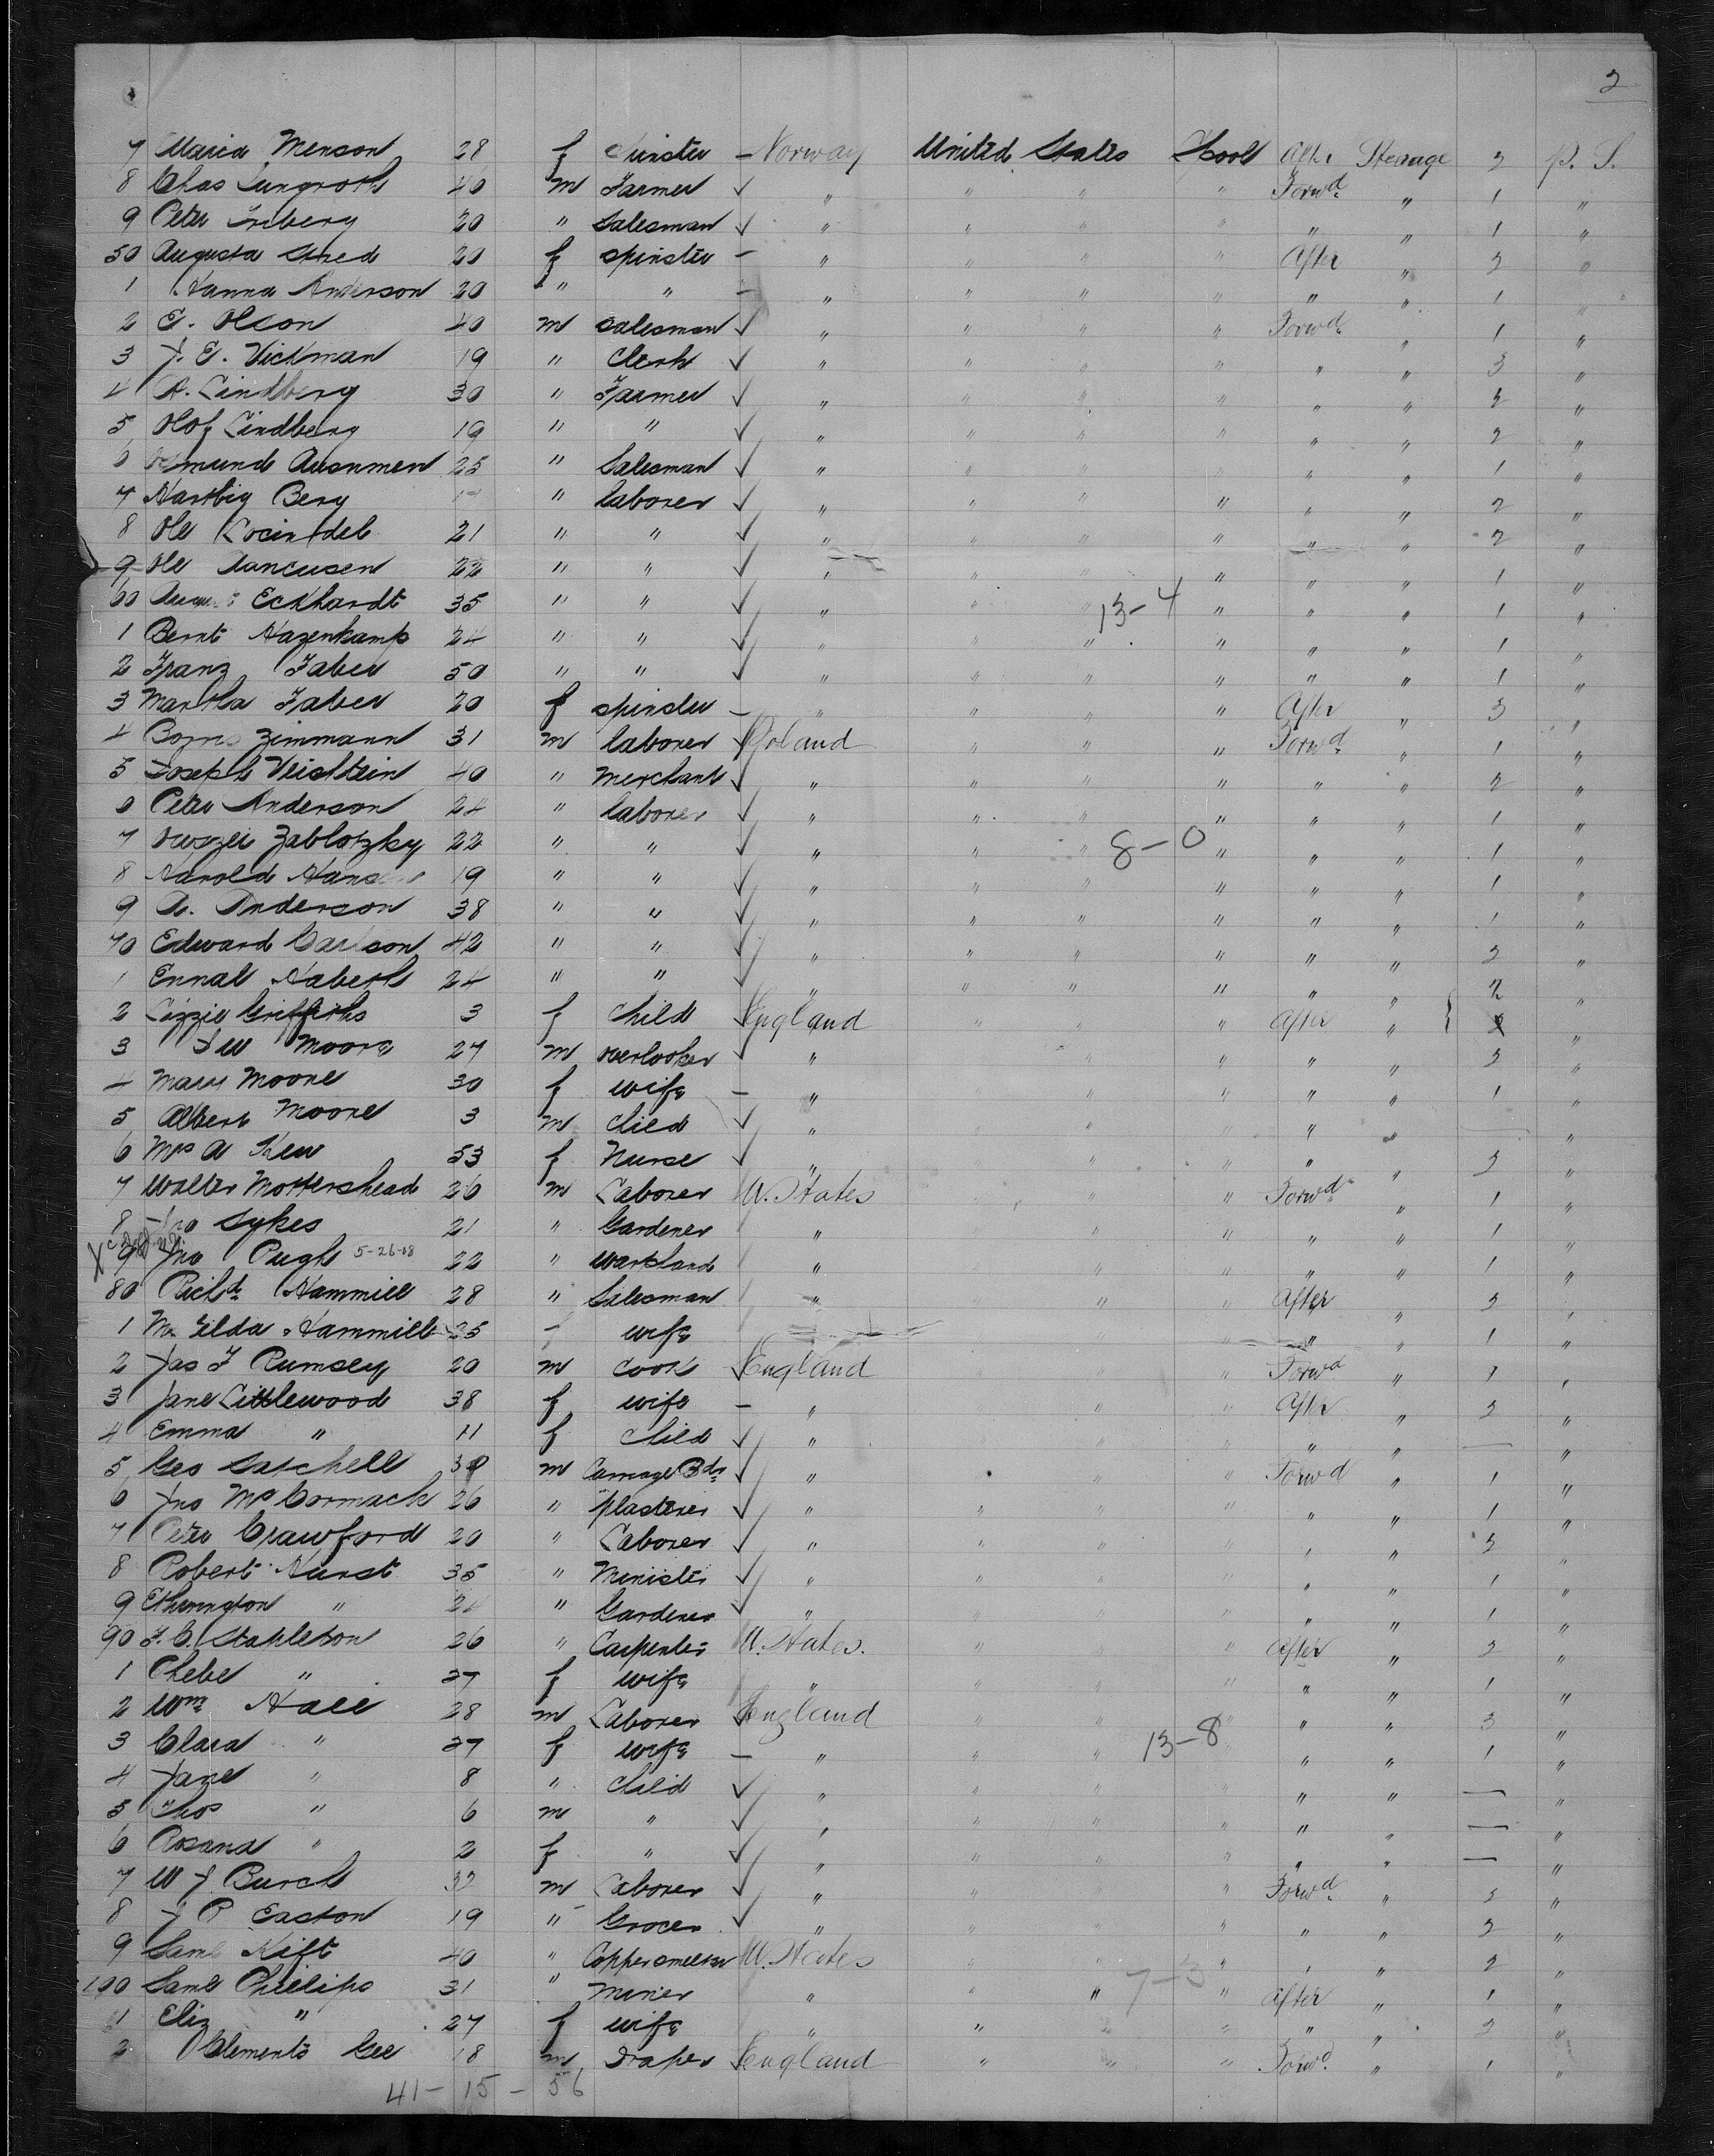 2
7 Maria Menson 28 f Spinster — Norway United States L'pool After Steerage 2 P. S.
8 Chas Lungroth 40 m Farmer ✓ " " " " Forwd " 1 "
9 Peter Friberg 20 " Salesman ✓ " " " " " " 1 "
50 Augusta Sired 20 f spinster — " " " " After " 2 "
1 Hanna Anderson 20 " " — " " " " " " 1 "
2 E. Olson 40 m salesman ✓ " " " " Forwd " 1 "
3 J. E. Vickman 19 " Clerk ✓ " " " " " " 3 "
4 A. Lindberg 30 " Farmer ✓ " " " " " " 2 "
5 Olof Lindberg 19 " " ✓ " " " " " " 2 "
6 Osmund 25 " Salesman ✓ " " " " " " 1 "
7 Hartbig Berg " laborer ✓ " " " " " " 2 "
8 Ole 21 " " ✓ " " " " " " 2 "
9 Ole Hancusen 22 " " ✓ " " " " " " 1 "
60 August Eckhardt 35 " " ✓ " " 13-4 " " " 1 "
1 Bernt Hazenkamp 24 " " ✓ " " " " " " 1 "
2 Franz Faber 50 " " ✓ " " " " " " 1 "
3 Martha Faber 20 f spinster — " " " " After " 3 "
4 Zimmann 31 m laborer ✓ Poland " " " Forwd " 1 "
5 Joseph Veichtein 40 " Merchant ✓ " " " " " " 2 "
6 Peter Anderson 24 " laborer ✓ " " " " " " 1 "
7 Zablotzky 22 " " ✓ " " " 8-0 " " " 1 "
8 Harold Hansen 19 " " ✓ " " " " " " 1 "
9 A. Anderson 38 " " ✓ " " " " " " 1 "
70 Edward Carlson 42 " " ✓ " " " " " " 2 "
1 Ennal Haberth 24 " " ✓ " " " " " " 2 "
2 Lizzie Griffiths 3 f Child ✓ England " " " After " "
3 Moore 27 m overlooker ✓ " " " " " " 2 "
4 Mary Moore 30 f wife — " " " " " " 1 "
5 Albert Moore 3 m Child ✓ " " " " " " — "
6 Mrs A Kew 53 f Nurse ✓ " " " " " " 2 "
7 Walter Mottershead 26 m Laborer U. States " " " Forwd " 1 "
8 Jno Sykes 21 " Gardener " " " " " " 1 "
X 9 Jno Pugh 5-26-08 22 " " " " " " " 1 "
80 Richd Hammill 28 " Salesman " " " " After " 2 "
1 Mr Gilda Hammill 25 f wife " " " " " " 1 "
2 Jas F Rumsey 20 m Cook ✓ England " " " Forwd " 1 "
3 Jane Littlewood 38 f wife — " " " " After " 2 "
4 Emma " 11 f Child ✓ " " " " " " — "
5 Geo Satchell 39 m Carriage Bdr ✓ " " " " Forwd " 1 "
6 Jno McCormack 26 " plasterer ✓ " " " " " " 1 "
7 Peter Crawford 20 " Laborer ✓ " " " " " " 2 "
8 Robert Hurst 35 " Minister ✓ " " " " " " 1 "
9 Etherington " 24 " Gardener ✓ " " " " " " 1 "
90 F. C. Stapleton 26 " Carpenter U. States. " " " After " 2 "
1 Phebe " 27 f wife " " " " " " 1 "
2 Wm Hall 28 m Laborer ✓ England " " " " " 3 "
3 Clara " 27 f wife — " " " 13-8 " " 1 "
4 Jane " 8 " child ✓ " " " " " " — "
5 Thos " 6 m " ✓ " " " " " " — "
6 Rosana " 2 f " ✓ " " " " " " — "
7 W J Burch 32 m Laborer ✓ " " " " Forwd " 2 "
8 J P Easton 19 " Grocer ✓ " " " " " " 2 "
9 Saml Kift 40 " Coppersmelter U. States " " " " " 2 "
100 Saml Phillips 31 " Miner " " " 7-3 " After " 1 "
1 Eliz " 27 f wife " " " " " " 2 "
2 Clements Gee 18 m Draper ✓ England " " " Forwd " 1 "
41 - 15 - 56